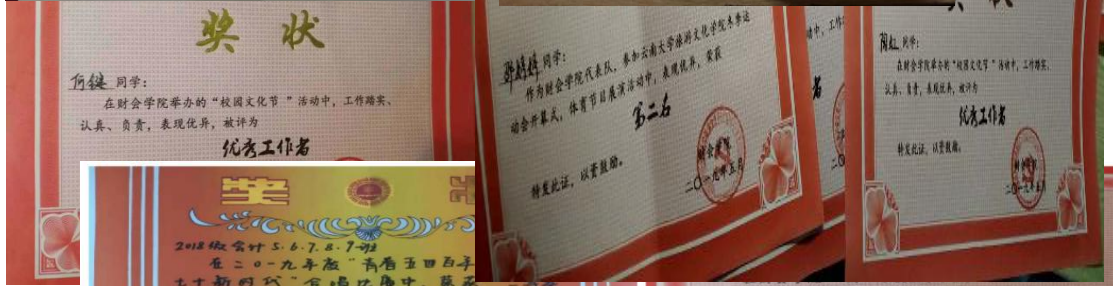 奖 状
何
同学:
在财会学院举办的“校园文化节”活动中,工作踏实、
认真、负责,表现优异,被评为
优秀工作者
奖
2018级会计5.6.7.8.9班
在二0一九年度“青春五四百年
婷婷 同学:
作为财会学院代表队,参加云南大学旅游文化学院冬季运
动会开幕式,体育节目展演活动中,表现优异,荣获
第二名
特发此证,以资鼓励。
财会学院
二〇一九年五月
动中,工作
者
状
同学:
在财会学院举办的“校园文化节”活动中,工作踏实、
认真、负责,表现优异,被评为
优秀工作者
特发此证,以资鼓励。
财会学院
二〇一九年五月